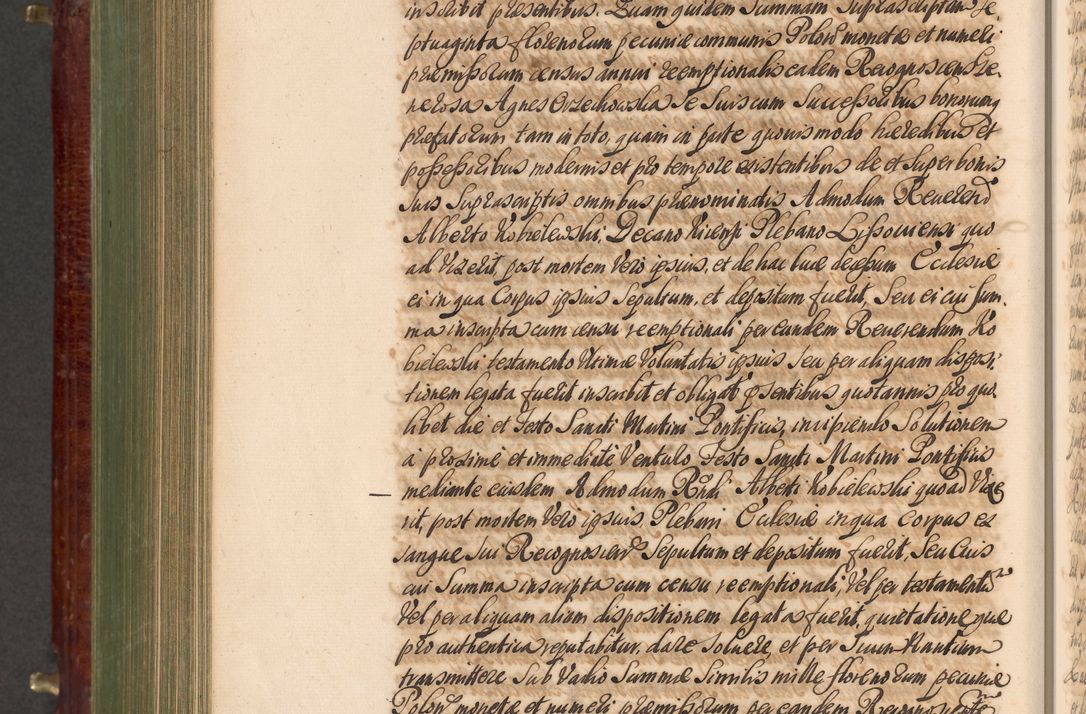 inscribit praesentibus. Quam quidem Summam Suprascriptam Se
ptuaginta florenorum pecuniae communis Polon monetae et numeri
praemissorum census annui reemptionalis eadem Recognoscens Ge
nerosa Agnes Orzechowska se suis cum Successoribus bonorumq
praefatorum tam in toto, quam in parte quovis modo haeredibus et
possessoribus modernis et pro tempore existentibus de et super bonis
suis Suprascriptis omnibus praenominatis Admodum Reverend
Alberto Kobielewski, Decano Plebano Lissoviensi quo
ad vixerit, post mortem vero ipsius, et de hac luce decessum Ecclesiae
ei in qua Corpus ipsius Sepultum, et depositum fuerit, Seu ei cui Sum
ma inscripta cum censu reemptionali per eundem Reverendum Ko
bielewski testamento Ultimae Voluntatis ipsius seu per aliquam disposi
tionem legata fuerit inscribit et obligat psentibus quotannis pro quo
libet die et Festo Sancti Martini Pontificis, incipiendo Solutionem
a proxime et immediate Venturo Festo Sancti Martini Pontificis
mediante eiusdem Admodum Rndi Alberti Kobielewski quoad Vixe
rit, post mortem Vero ipsius, Plebani Ecclesiae in qua Corpus ex
sangue sui Recognoscen Sepultum et depositum fuerit, Seu Cuis
cui Summa inscripta cum censu reemptionali, Vel per testamentu
Vel per aliquam aliam dispositionem legata fuerit, quietatione quae
pro authentica reputabitur, dare Solvere, et per Suum Nuntium
transmittere Sub Vadio Summae Similis mille florenorum pecuniae
Polon monetae et numeri praemissorum per eandem Recognoscente